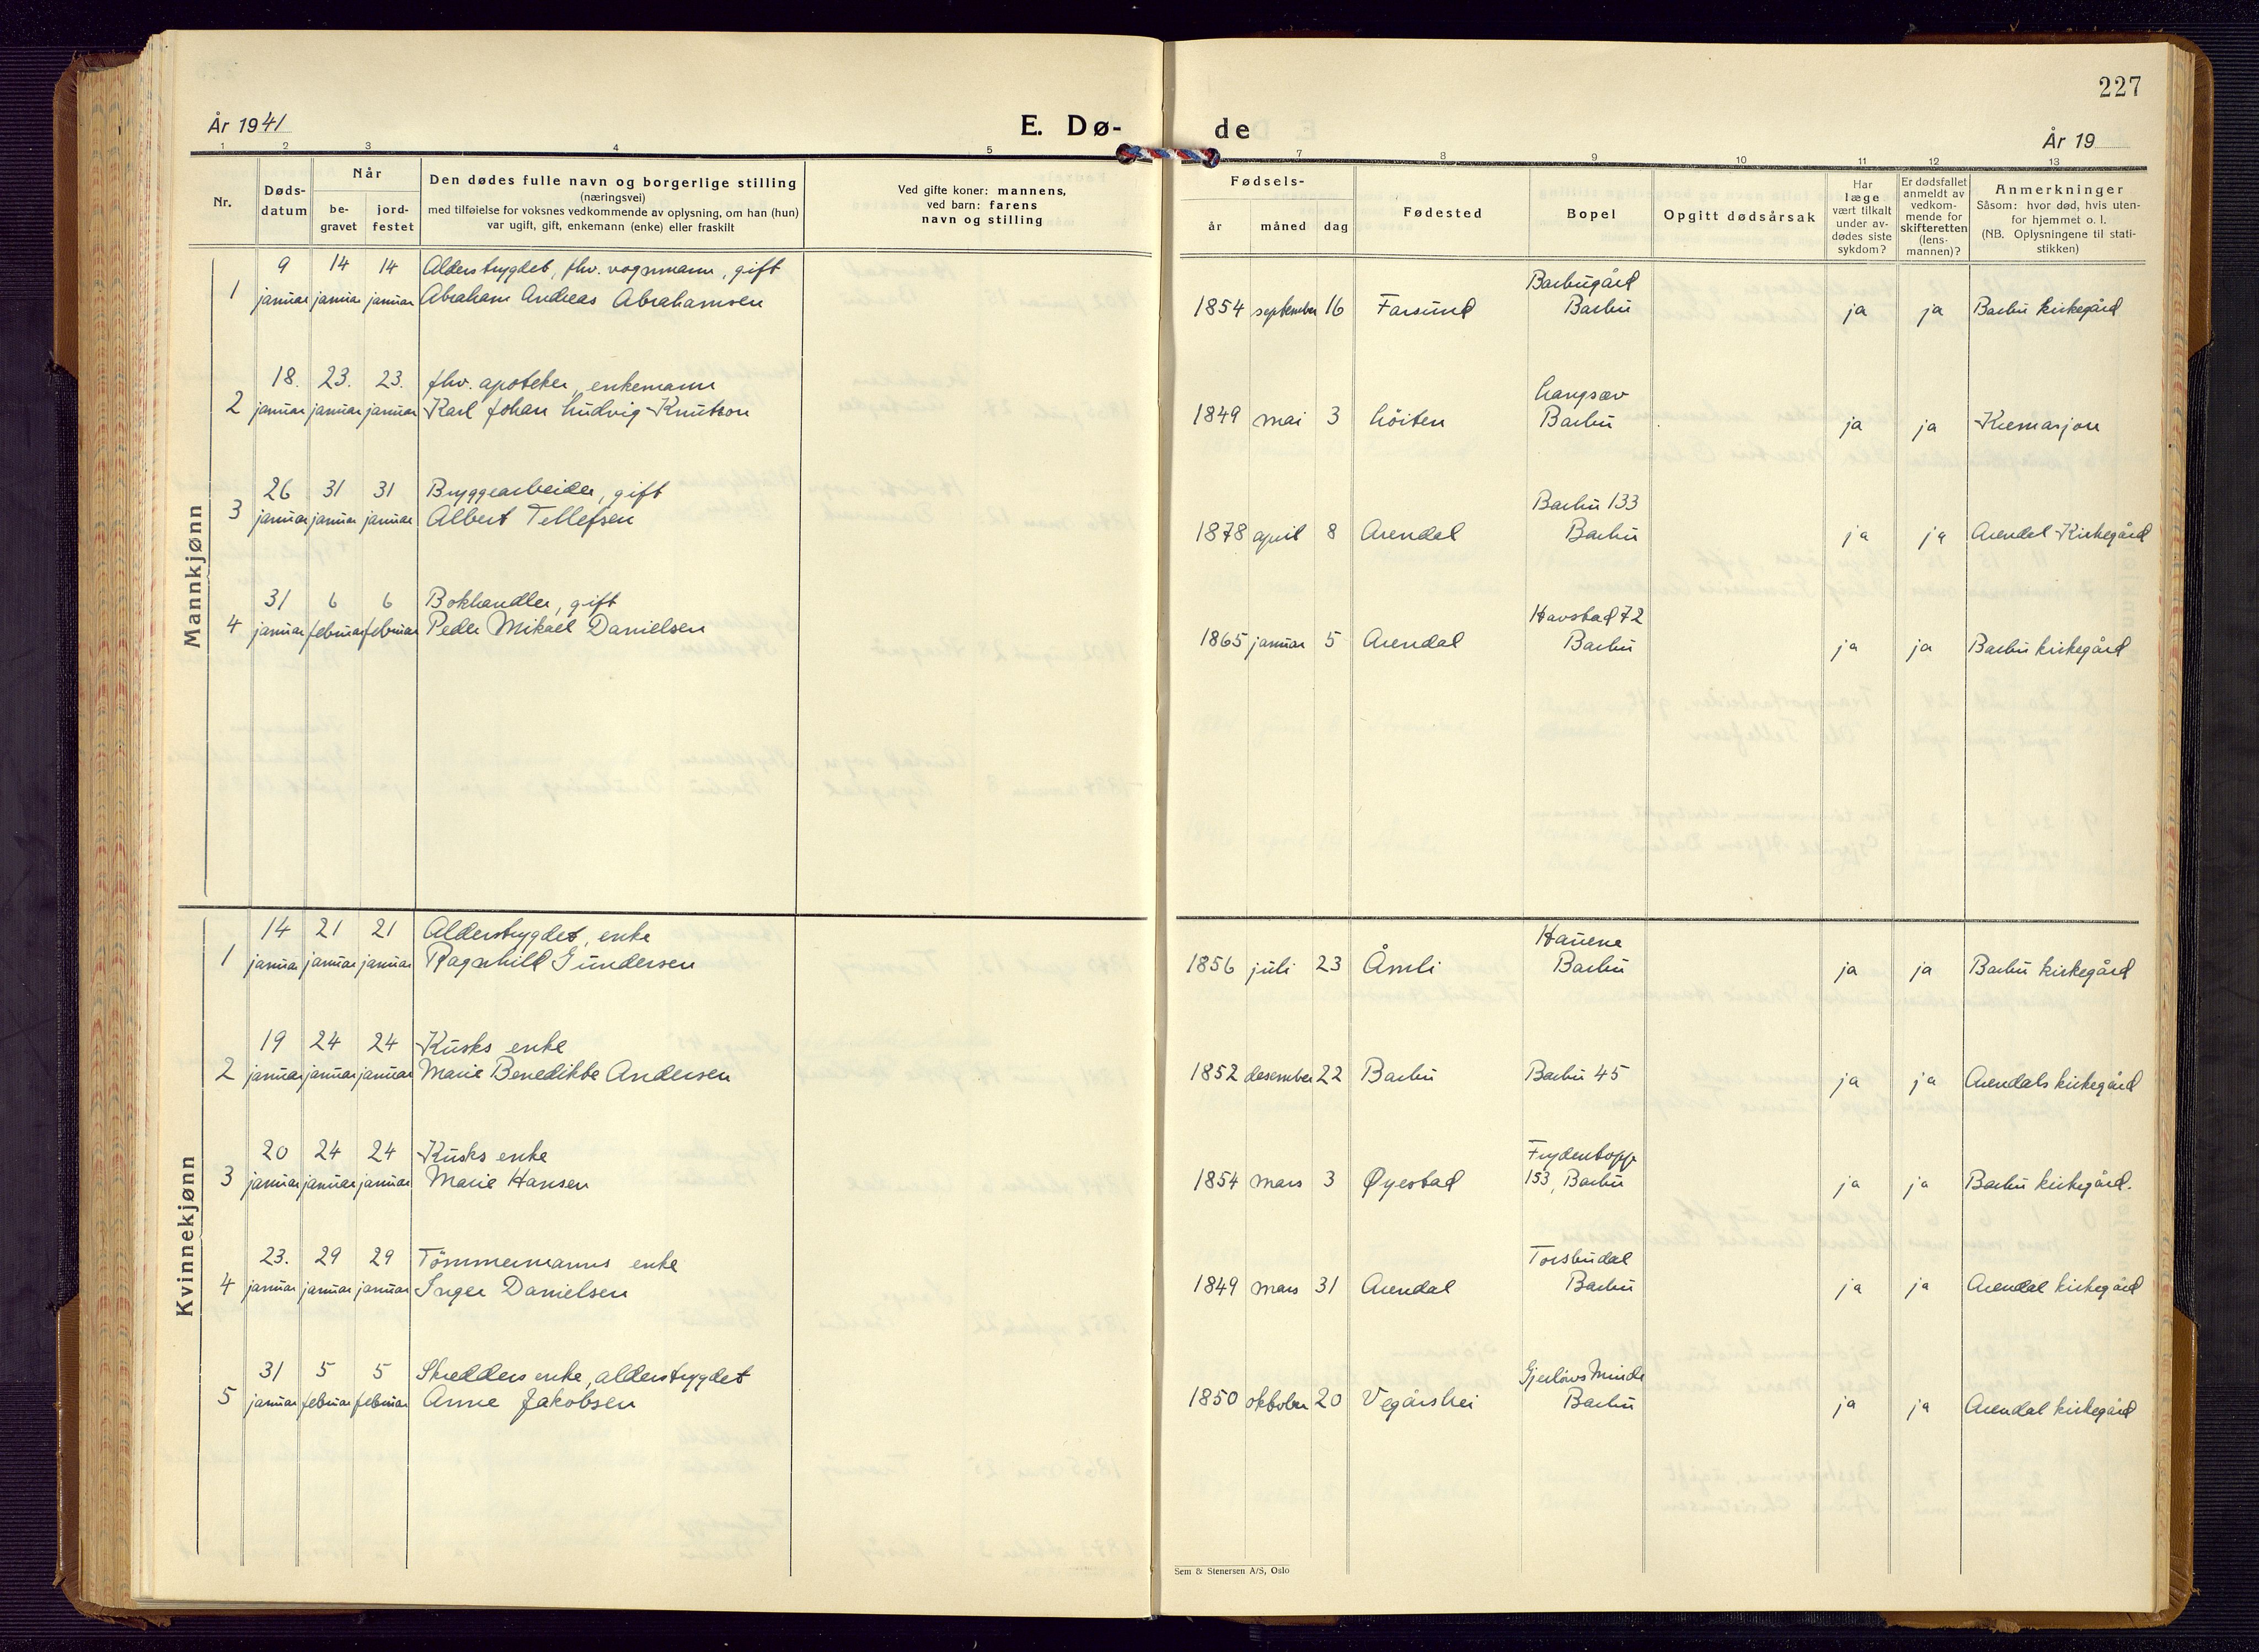 227
År 1941
E. Dø-
de
År 19
1 2 3 4 5 7 8 9 10 11 12 13
Nr.
Døds-
datum
Når
be-
gravet
jord-
festet
Den dødes fulle navn og borgerlige stilling
(næringsvei)
med tilføielse for voksnes vedkommende av oplysning, om han (hun)
var ugift, gift, enkemann (enke) eller fraskilt
Ved gifte koner: mannens,
ved barn: farens
navn og stilling
Fødsels-
år måned dag
Fødested
Bopel
Opgitt dødsårsak
Har
læge
vært tilkalt
under av-
dødes siste
sykdom?
Er dødsfallet
anmeldt av
vedkom-
mende for
skifteretten
(lens-
mannen)?
Anmerkninger
Såsom: hvor død, hvis uten-
for hjemmet o. l.
(NB. Oplysningene til stati-
stikken)
Mannkjønn
9 14 14 Alderstrygdet, fhv. vognmann, gift Barbugård
1 januar januar januar Abraham Andreas Abrahamsen 1854 september 16 Farsund Barbu ja ja Barbu kirkegård
18. 23. 23. fhv. apoteker, enkemann Langsæv
2 januar januar januar Karl Johan Ludvig Knutson 1849 mai 3 Löiten Barbu ja ja Kremasjon
26 31 31 Bryggearbeider, gift Barbu 133
3 januar januar januar Albert Tellefsen 1878 april 8 Arendal Barbu ja ja Arendal Kirkegård
31 6 6 Bokhandler, gift Havstad 72
4 januar februar februar Peder Mikael Danielsen 1865 januar 5 Arendal Barbu ja ja Barbu kirkegård
Kvinnekjønn
14 21 21 Alderstrygdet, enke Hauene
1 januar januar januar Ragnhild Gundersen 1856 juli 23 Åmli Barbu ja ja Barbu kirkegård
19 24 24 Kusks enke
2 januar januar januar Marie Benedikte Andersen 1852 desember 22 Barbu Barbu 45 ja ja Arendals kirkegård
20 24 24 Kusks enke Frydentopp
3 januar januar januar Marie Hansen 1854 mars 3 Øyestad 153, Barbu ja ja Barbu kirkegård.
23. 29 29 Tömmermanns enke Torsbudal
4 januar januar januar Inger Danielsen 1849 mars 31 Arendal Barbu ja ja Arendal kirkegård
31 5 5 Skredders enke, alderstrygdet Gjerlöws Minde
5 januar februar februar Anne Jakobsen 1850 oktober 20 Vegårshei Barbu ja ja Arendal kirkegård
Sem & Stenersen A/S, Oslo